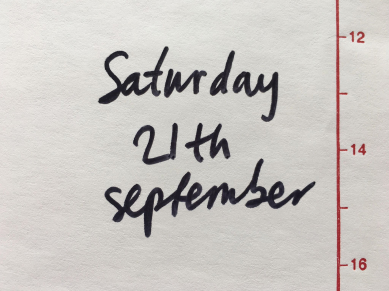 Saturday
21th
september
12
14
16